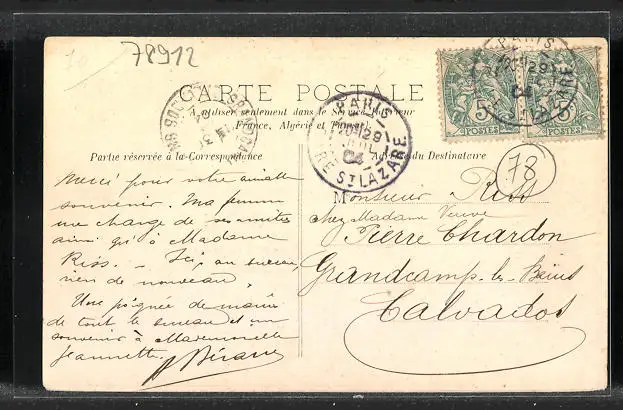 78912
CARTE POSTALE
A utiliser seulement dans le Service Intérieur
France, Algérie et Tunisie
Partie réservée à la Correspondance
Adresse du Destinataire
PARIS
29
JUIL
04
RE ST LAZARE
PARIS
29
04
5 5
POSTES POSTES
78
Merci pour votre aimable
souvenir. Ma femme
me charge de ses amitiés
ainsi qu'à Madame
Riss. _ Ici, au bureau,
rien de nouveau.
Une poignée de main
de tout le bureau et un
souvenir à Mademoiselle
Jeannette.
Monsieur Riss
chez Madame Veuve
Pierre Chardon
Grandcamp-les-Bains
Calvados